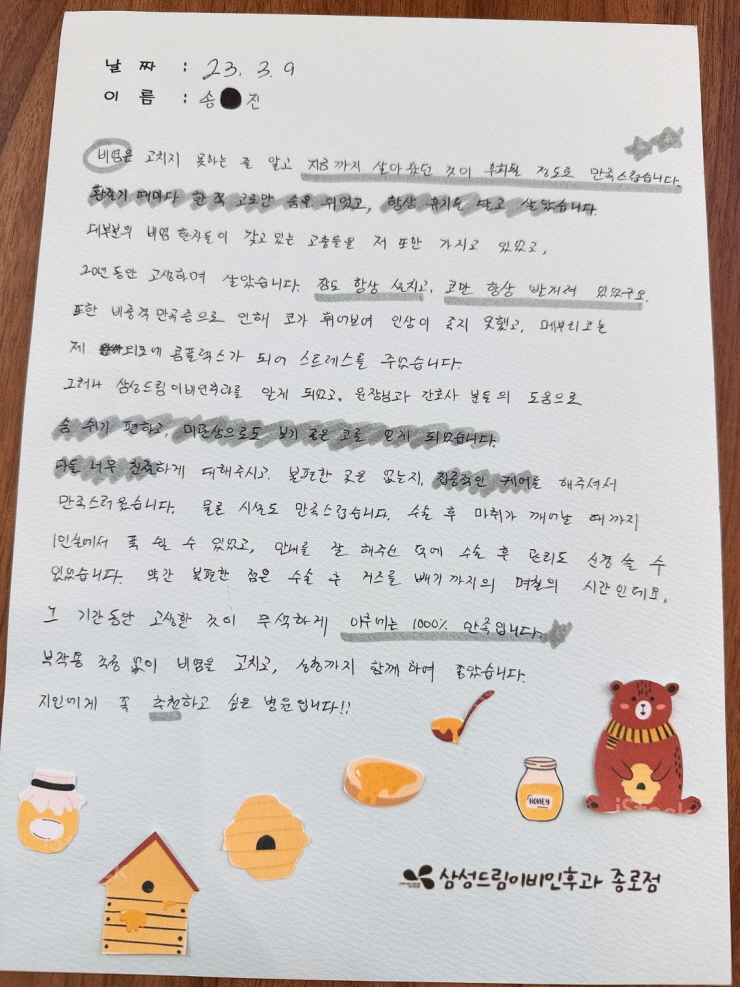 날 짜 : 23. 3. 9
이 름 : 송 진
비염은 고치지 못하는 줄 알고 지금까지 살아왔던 것이 후회될 정도로 만족스럽습니다.
환절기 때마다 한 쪽 코로만 숨을 쉬었고, 항상 휴지를 달고 살았습니다.
대부분의 비염 환자들이 갖고 있는 고충들을 저 또한 가지고 있었고,
20년 동안 고생하며 살았습니다. 잠도 항상 설치고, 코만 항상 빨개져 있었구요.
또한 비중격 만곡증으로 인해 코가 휘어보여 인상이 좋지 못했고, 매부리코는
제 외모에 콤플렉스가 되어 스트레스를 주었습니다.
그러나 삼성드림이비인후과를 알게 되었고, 원장님과 간호사 분들의 도움으로
숨 쉬기 편하고, 미관상으로도 보기 좋은 코를 얻게 되었습니다.
다들 너무 친절하게 대해주시고, 불편한 곳은 없는지, 집중적인 케어를 해주셔서
만족스러웠습니다. 물론 시설도 만족스럽습니다. 수술 후 마취가 깨어날 때까지
1인실에서 푹 쉴 수 있었고, 안내를 잘 해주신 덕에 수술 후 관리도 신경 쓸 수
있었습니다. 약간 불편한 점은 수술 후 거즈를 빼기 까지의 며칠의 시간인데요,
그 기간동안 고생한 것이 무색하게 이후에는 1000% 만족입니다.
부작용 걱정 없이 비염을 고치고, 성형까지 함께 하여 좋았습니다.
지인에게 꼭 추천하고 싶은 병원입니다!!
HONEY
iStock
삼성드림이비인후과 종로점